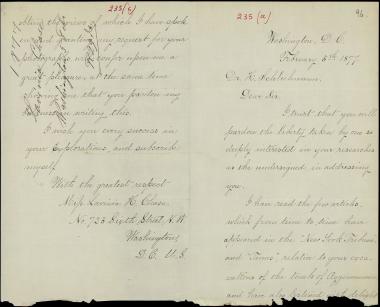 96
235 (a)
Washington, D. C.
February 8th 1877.
Dr. H. Schliemann.
Dear Sir.
I trust, that you will
pardon the liberty taken by one so
deeply interested in your researches
as the undersigned in addressing
you.
I have read the few articles
which from time to time have
appeared in the "New York Tribune,"
and "Times," relative to your exca-
vations of the tomb of Agamemnon
and have also
235 (c)
obtain the views of which I have spok-
en and granting my request for your
photograph, will confer upon me a
great pleasure, at the same time
showing me that you pardon my
in writing this.
I wish you every success in
your explorations, and subscribe
myself
With the greatest respect
Miss Lavinia H. Chase
No. 723 Sixth Street N. W.
Washington,
D. C. U. S.
1877
Lavinia Chase
Washington